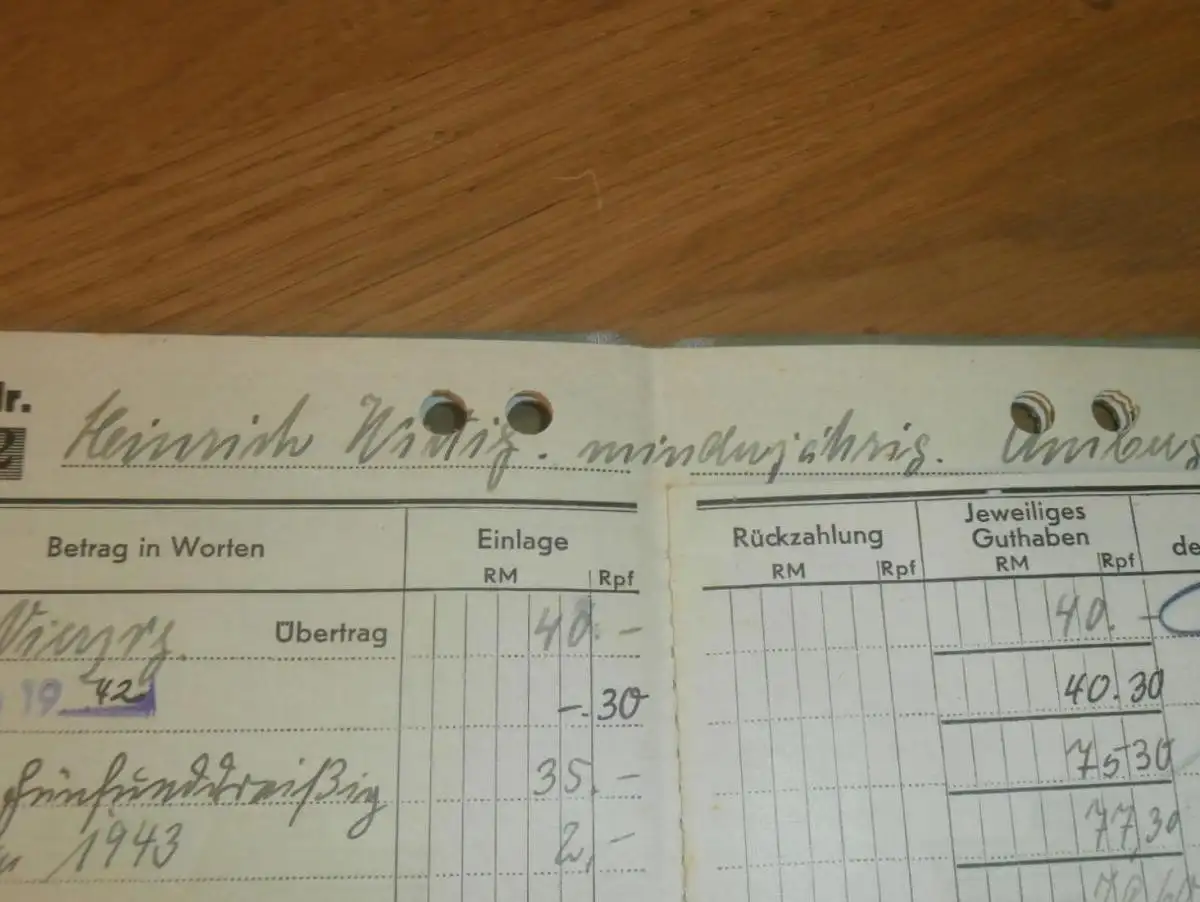 Nr.
2 Heinrich Wittig. minderjährig.
Betrag in Worten Einlage RM Rpf Rückzahlung RM Rpf Jeweiliges Guthaben RM Rpf de
Vierzig. Übertrag 40. – 40. –
19 42 –. 30 40. 30
fünfunddreißig 35. – 75 30
1943 2, – 77, 30